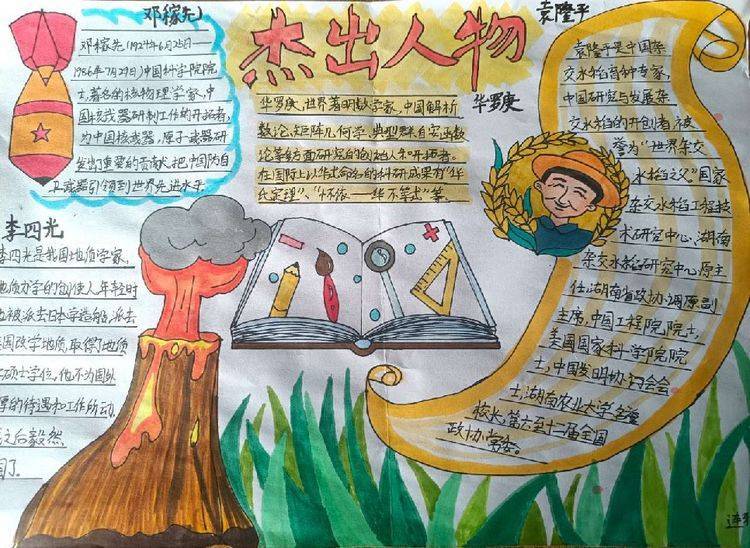 杰出人物
邓稼先
邓稼先(1924年6月25日—
1986年7月29日)中国科学院院
士,著名的核物理学家,中
国核武器研制工作的开拓者,
为中国核武器、原子武器研
发出重要的贡献,把中国防自
卫武器引领到世界先进水平
华罗庚
华罗庚,世界著明数学家,中国解析
数论、矩阵几何学、典型群、自安函数
论等多方面研究的创始人和开拓者。
在国际上以华式命名的科研成果有"华
氏定理"、"怀依—华不等式"等。
袁隆平
袁隆平是中国杂
交水稻育种专家,
中国研究与发展杂
交水稻的开创者,被
誉为"世界杂交
水稻之父"国家
杂交水稻工程技
术研究中心,湖南
杂交水稻研究中心原主
任,湖南省政协,调原副
主席,中国工程院院士,
美国国家科学院院
士,中国发明协会会
士,湖南农业大学名誉
校长,第六至十二届全国
政协常委。
李四光
李四光是我国地质学家、
地质力学的创使人,年轻时
被派去日本学造船,派去
国改学地质,取得地质
硕士学位,他不为国外
厚的待遇和工作所动,
后毅然
国了。